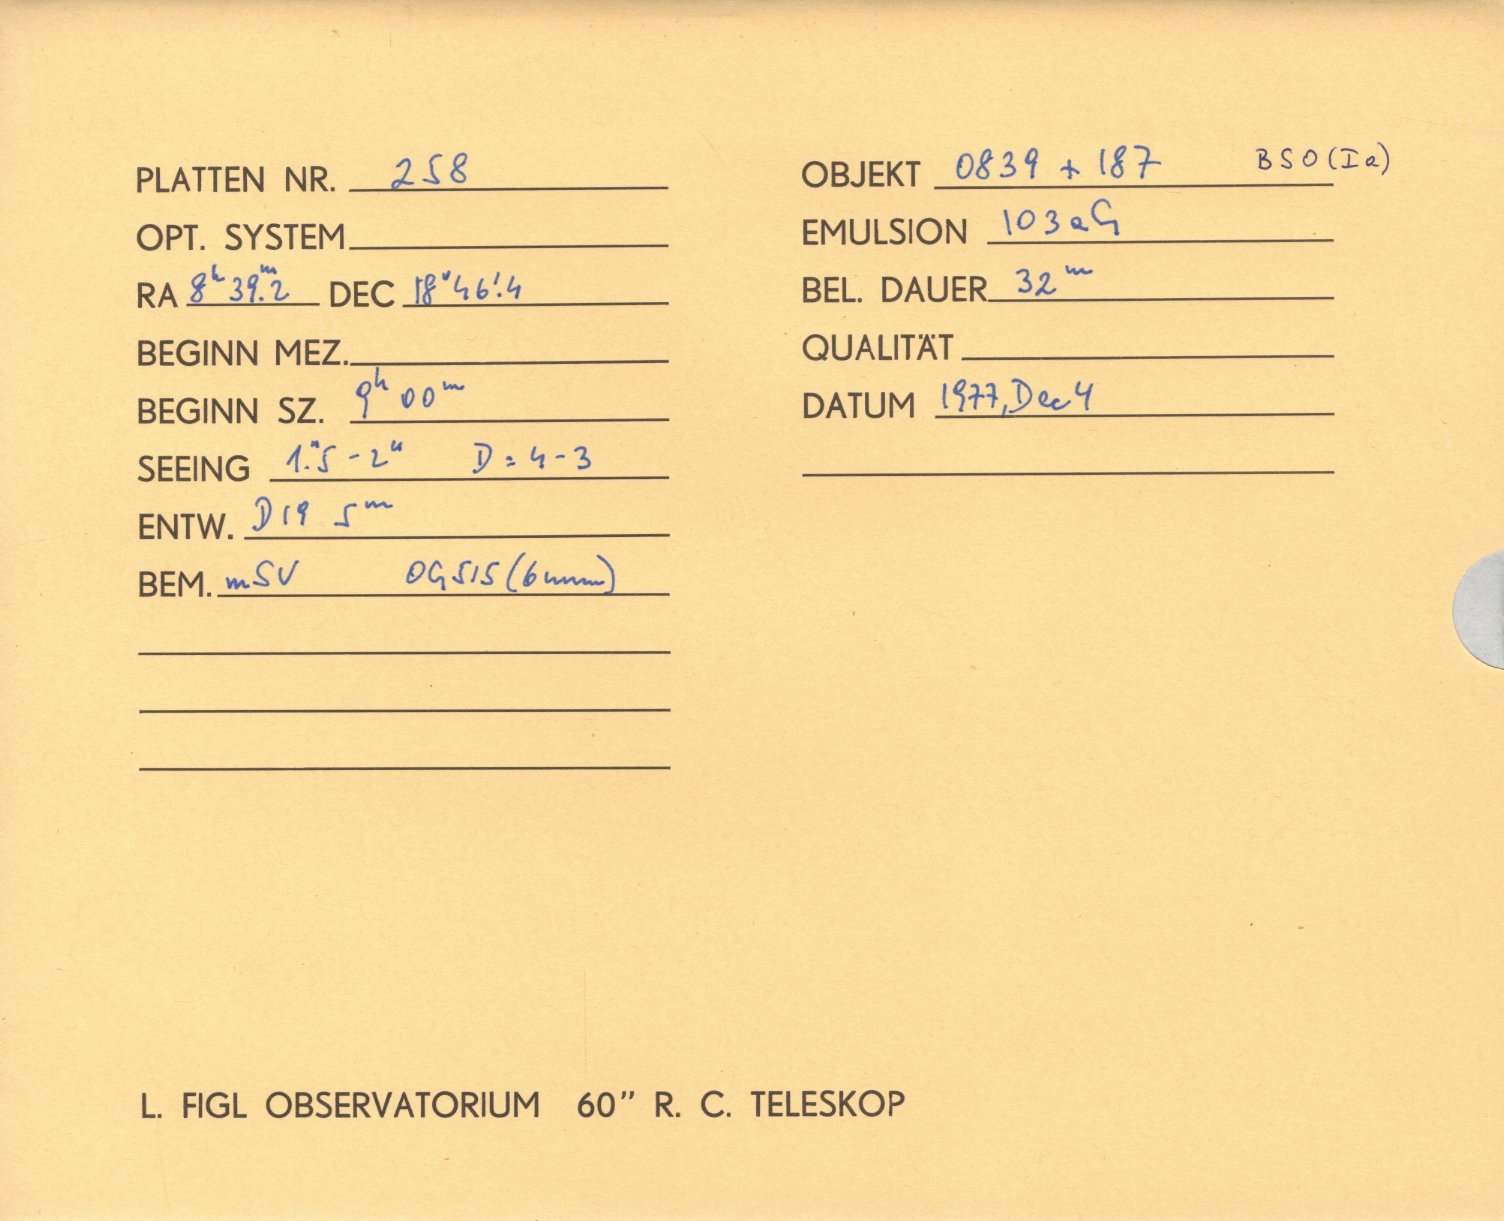 PLATTEN NR. 258
OPT. SYSTEM
RA 8h 39m.2 DEC 18° 46'.4
BEGINN MEZ.
BEGINN SZ. 9h 00m
SEEING 1."5 - 2" D = 4 - 3
ENTW. D19 5m
BEM. mSV OG515 (6mm)
OBJEKT 0839 + 187 BSO (Ia)
EMULSION 103aG
BEL. DAUER 32m
QUALITÄT
DATUM 1977, Dec 4
L. FIGL OBSERVATORIUM 60" R. C. TELESKOP